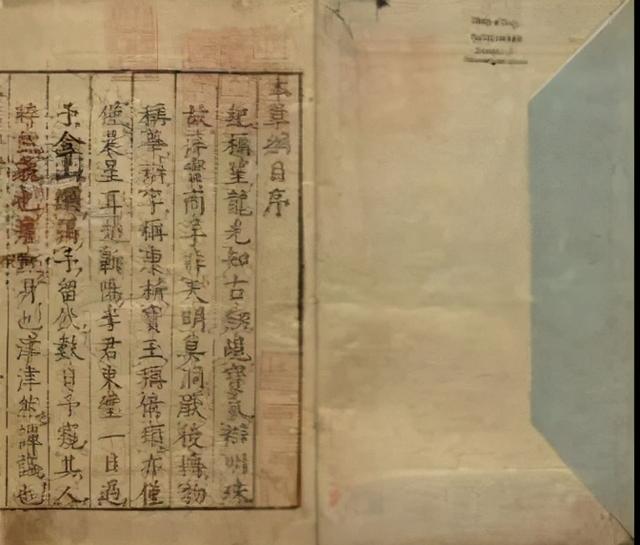 本草綱目序
紀稱望龍光知古劍覘寶氣辨明珠
故萍實商羊非天明莫洞厥後博物
稱華辯字稱康析寶玉稱倚頓亦僅
僅晨星耳楚蘄陽李君東璧一日過
予弇山園謁予留飲數日予窺其人
睟然貌也癯然身也津津然譚議也